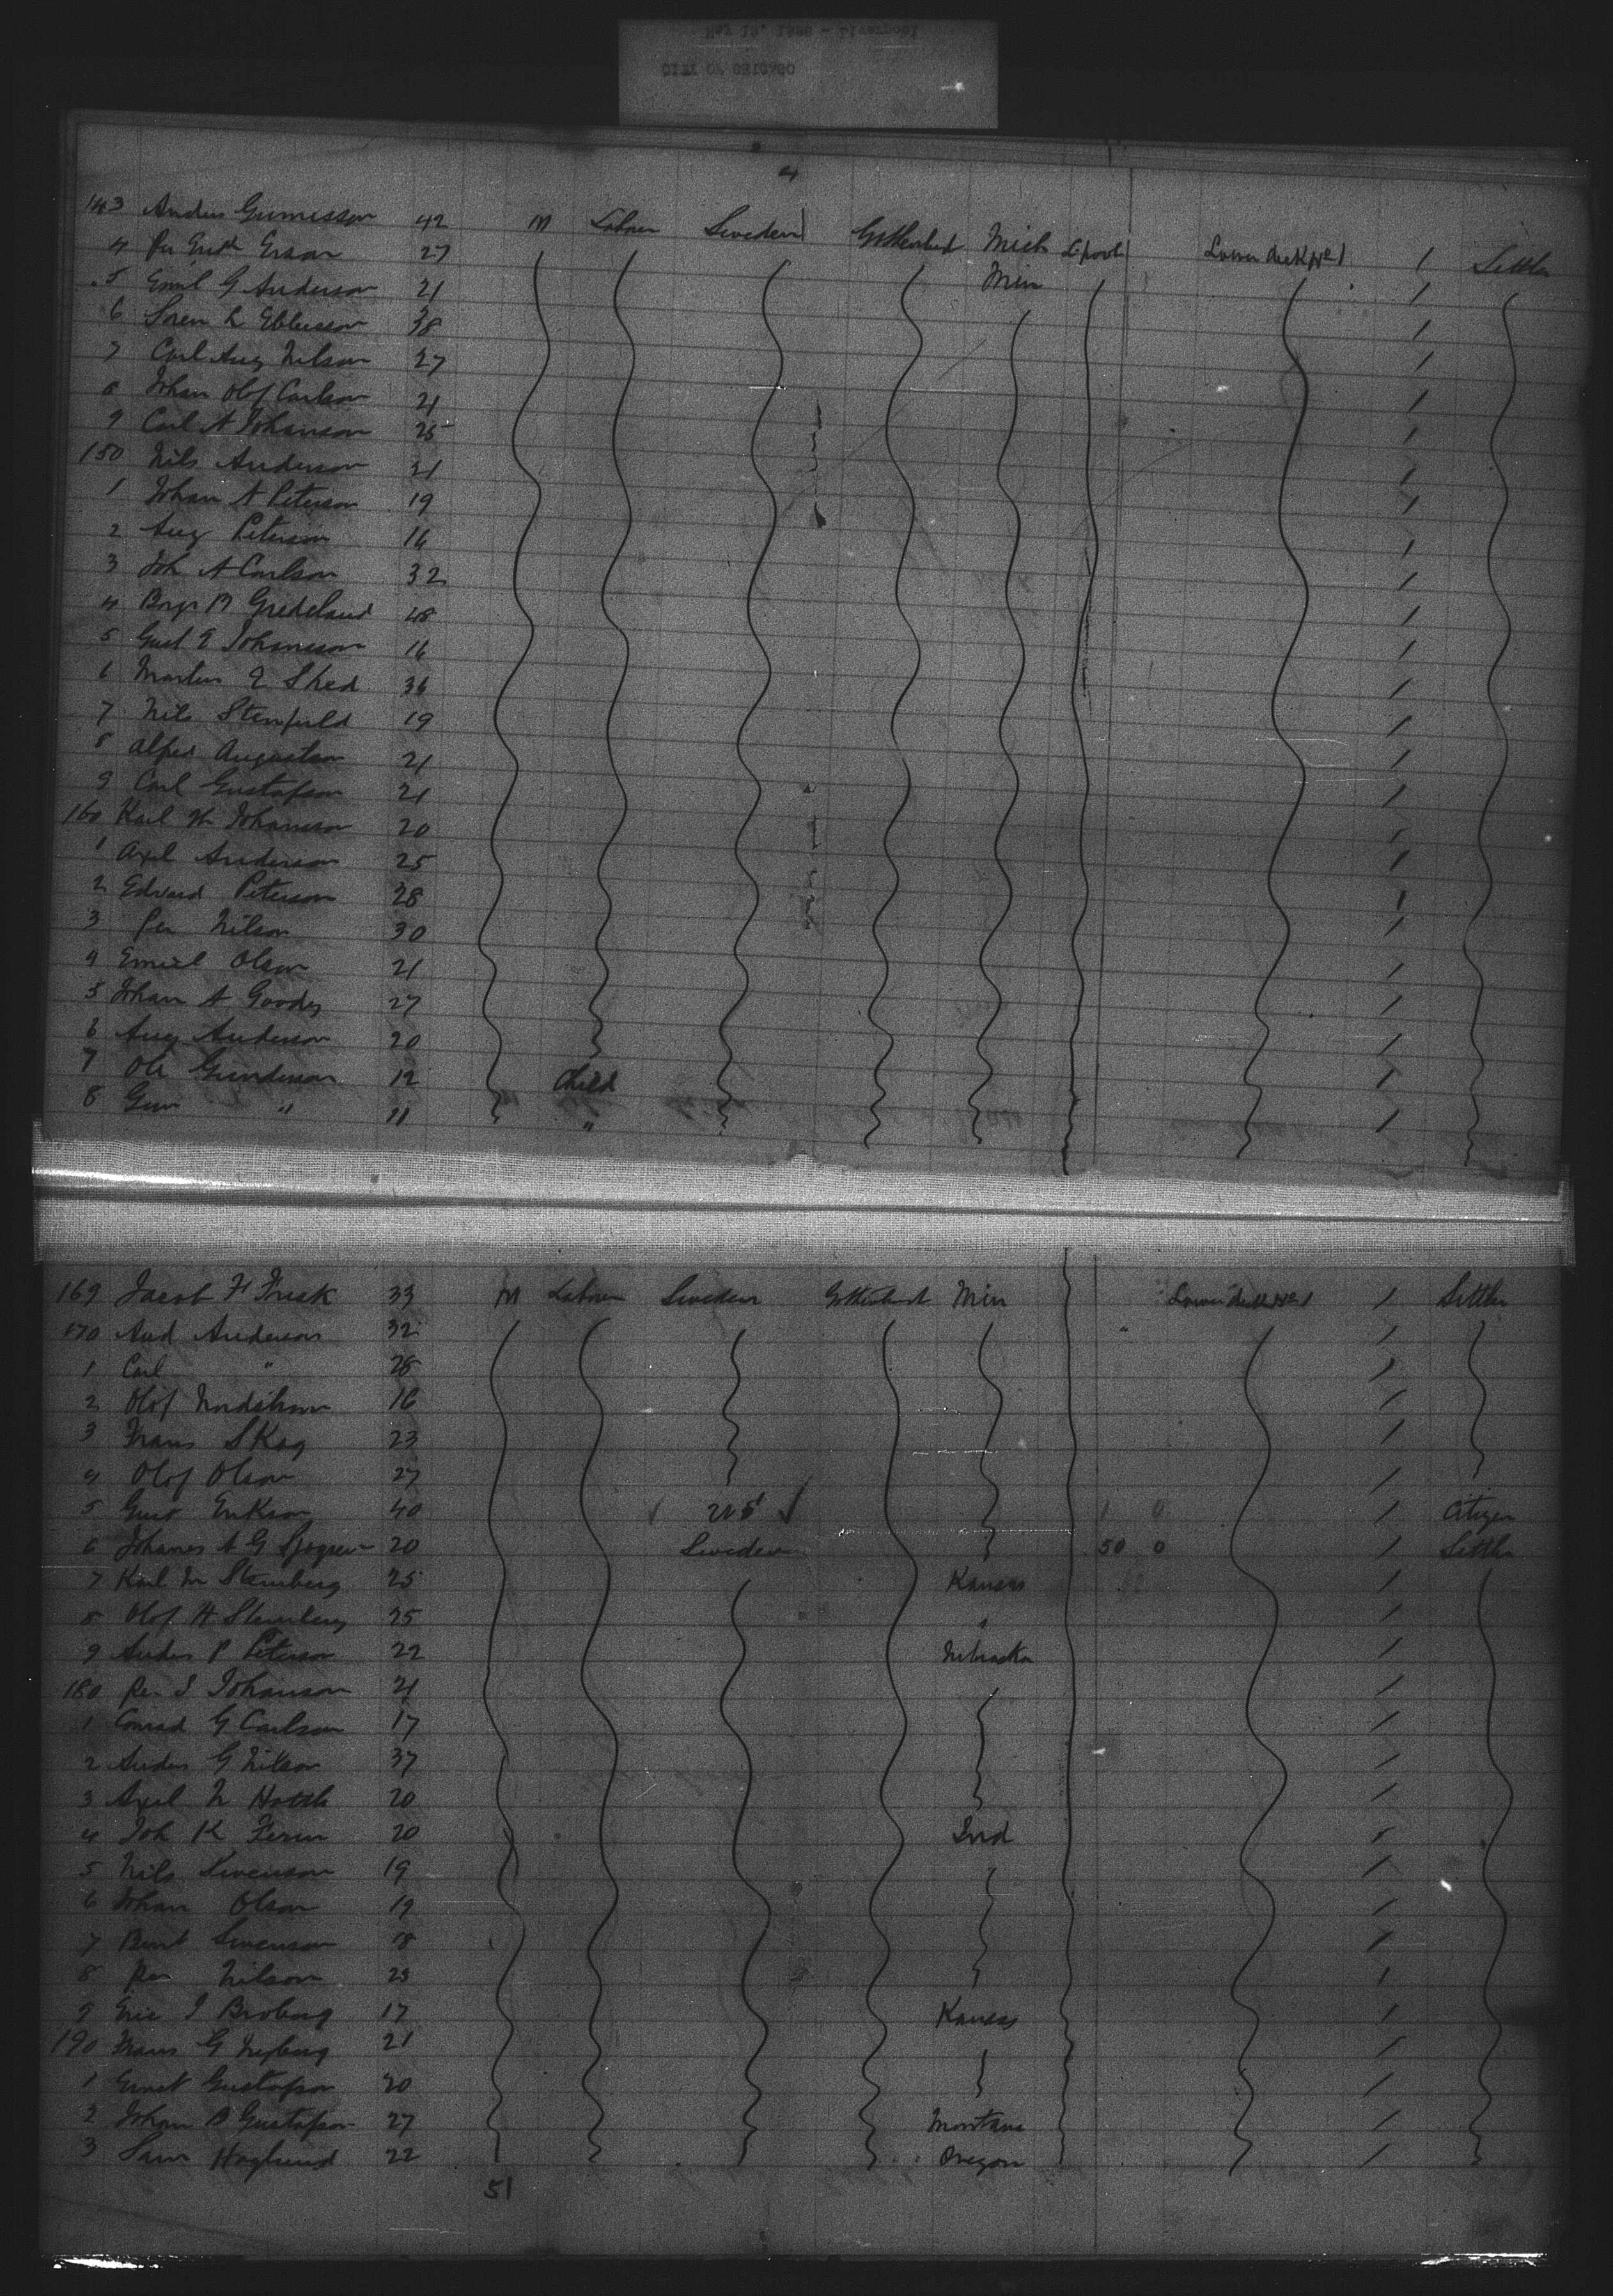 CITY OF CHICAGO
4
143 Anders Gumesson 42 M Labor Sweden Gothenburg Mich L'pool Lower deck No 1 / Settler
4 Per Ersson 27 Min /
5 Emil G Anderson 21 /
6 Soren L 38 /
7 Carl Aug Nilson 27 /
8 Johan Olof Carlson 21 /
9 Carl A Johanson 25 /
150 Nils Anderson 21 /
1 Johan A Peterson 19 /
2 Aug Peterson 16 /
3 Joh A Carlson 32 /
4 B Gredeland 48 /
5 Gust E Johansson 16 /
6 Martin E Sked 36 /
7 Nils Stenfeld 19 /
8 Alfred Augustson 21 /
9 Carl Gustafson 21 /
160 Karl W Johansson 20 /
1 Axel Anderson 25 /
2 Edward Peterson 28 /
3 Per Nilson 30 /
4 Emiel Olson 21 /
5 Johan A 27 /
6 Aug Anderson 20 /
7 Ole Gunderson 12 Child /
8 Gun " 11 " /
169 Jacob F Frisk 33 M Labor Sweden Gothenburg Min Lower deck No 1 / Settler
170 And Anderson 32 /
1 Carl " 28 /
2 Olof Nordstrom 16 /
3 Frans Skog 23 /
4 Olof Olson 27 /
5 Gust Erikson 40 U S 1 0 / Citizen
6 Johanes A G 20 Sweden 50 0 / Settler
7 Karl M Stenberg 25 Kansas /
8 Olof H Stenberg 25 " /
9 Anders P Peterson 22 Nebraska /
180 Per J Johanson 21 /
1 Conrad G Carlson 17 /
2 Anders G Nilson 37 /
3 Axel N 20 /
4 Joh K Ferm 20 Ind /
5 Nils Swenson 19 /
6 Johan Olson 19 /
7 Bent Swenson 18 /
8 Per Nilson 25 /
9 Eric J Broberg 17 Kansas /
190 Frans G 21 /
1 Ernst Gustafson 20 /
2 Johan B Gustafson 27 Montana /
3 Hoglund 22 Oregon /
51